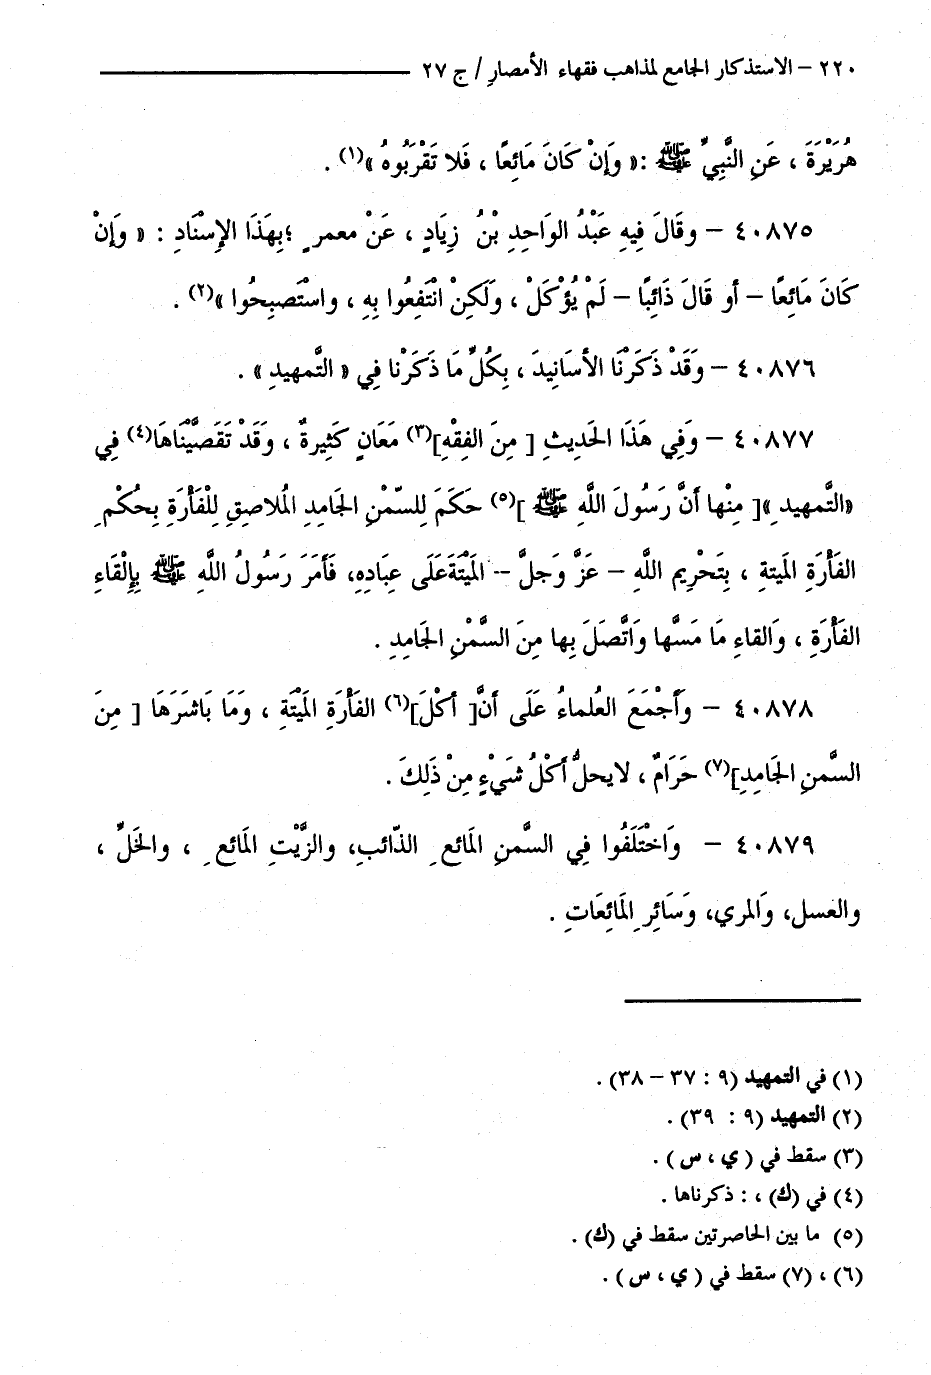 ٢٢٠ – الاستذكار الجامع لمذاهب فقهاء الأمصار / ج ٢٧
هُرَيْرَةَ ، عَنِ النَّبِيِّ ﷺ :« وَإِنْ كَانَ مَائِعًا ، فَلا تَقْرَبُوهُ »(١) .
٤٠٨٧٥ – وقَالَ فِيهِ عَبْدُ الوَاحِدِ بْنُ زِيَادٍ ، عَنْ معمرٍ ؛بِهَذَا الإِسْنَادِ : « وَإِنْ
كَانَ مَائِعًا – أو قَالَ ذَائِبًا – لَمْ يُؤْكَلْ ، وَلَكِنْ انْتَفِعُوا بِهِ ، واسْتَصبِحُوا »(٢) .
٤٠٨٧٦ – وَقَدْ ذَكَرْنَا الأسَانِيدَ ، بِكُلِّ مَا ذَكَرْنا فِي « التَّمهيدِ » .
٤٠٨٧٧ – وَفِي هَذَا الحَديثِ [ مِنَ الفِقْهِ](٣) مَعَانٍ كَثِيرةٌ ، وَقَدْ تَقَصَّيْنَاهَا(٤) فِي
«التَّمهيدِ»[ مِنْها أنَّ رَسُولَ اللَّهِ ﷺ ](٥) حَكَمَ لِلسّمْنِ الجَامِدِ المُلاصِقِ لِلْفَأْرَةِ بِحُكْمِ
الفَأْرَةِ المَيتةِ ، بِتَحْرِيمِ اللَّهِ – عَزَّ وَجلَّ – المَيْتَةَعَلَى عِبَادِهِ، فَأمَرَ رَسُولُ اللَّهِ ﷺ بِإِلْقَاءِ
الفَأْرَةِ ، وَالقاءِ مَا مَسَّها وَاتَّصَلَ بِها مِنَ السَّمْنِ الجَامِدِ .
٤٠٨٧٨ – وَأَجْمَعَ العُلماءُ عَلَى أنَّ[ أكْلَ](٦) الفَأْرَةِ المَيْتَةِ ، وَمَا بَاشَرَهَا [ مِنَ
السَّمنِ الجَامِدِ](٧) حَرَامٌ ، لايحلُّ أكْلُ شَيْءٍ مِنْ ذَلِكَ .
٤٠٨٧٩ – وَاخْتَلَفُوا فِي السَّمنِ المَائعِ الذّائبِ، والزَّيْتِ المَائعِ ، والخَلِّ ،
والعسل، وَالمري، وَسَائِرِ المَائِعَاتِ .
(١) في التمهيد (٩ : ٣٧ – ٣٨) .
(٢) التمهيد (٩ : ٣٩) .
(٣) سقط في ( ي ، س ) .
(٤) في (ك) ، : ذكرناها .
(٥) ما بين الحاصرتين سقط في (ك) .
(٦) ، (٧) سقط في ( ي ، س ) .